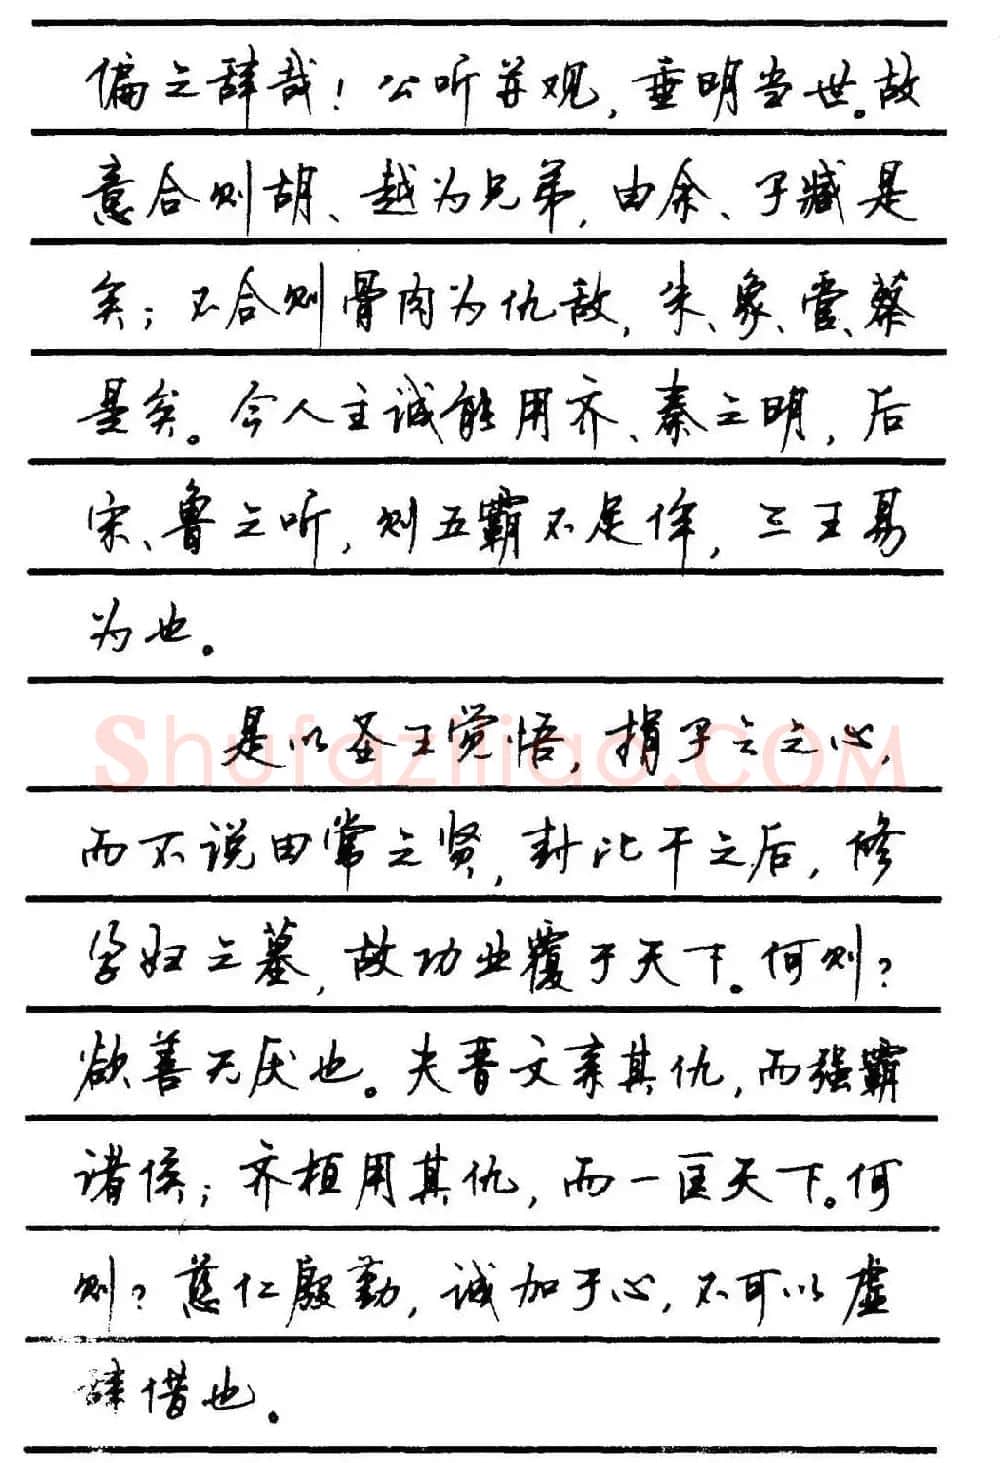 偏之辞哉！公听并观，垂明当世。故
意合则胡、越为兄弟，由余、子臧是
矣；不合则骨肉为仇敌，朱、象、管、蔡
是矣。今人主诚能用齐、秦之明，后
宋、鲁之听，则五霸不足侔，三王易
为也。
是以圣王觉悟，捐子之之心，
而不说田常之贤，封比干之后，修
孕妇之墓，故功业覆于天下。何则？
欲善无厌也。夫晋文亲其仇，而强霸
诸侯；齐桓用其仇，而一匡天下。何
则？慈仁殷勤，诚加于心，不可以虚
辞借也。
Shufaziliao.COM